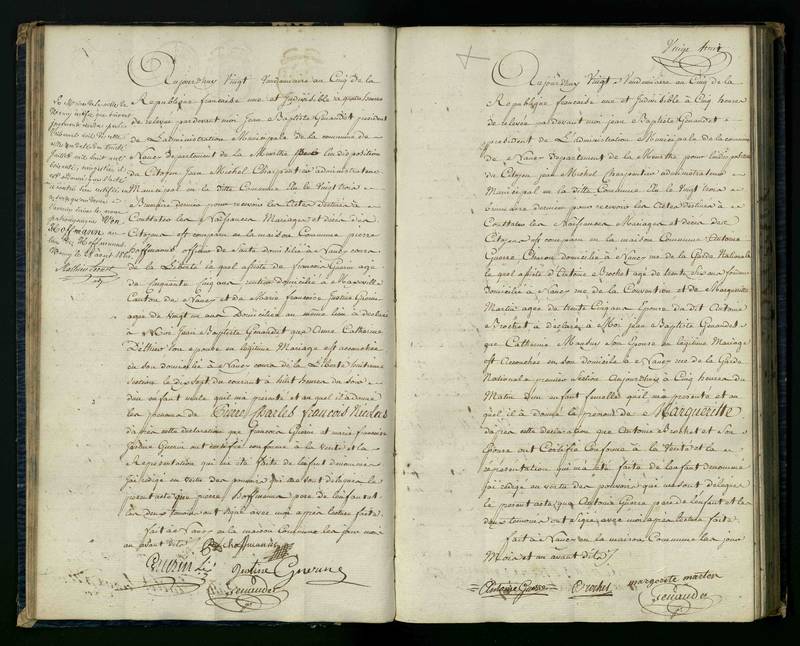 Aujourd'huy Vingt Vendemiaire au Cinq de la
Republique francoise une et Indivisible a quatre heures
de relevee pardevant moi Jean Baptiste Genaudet president
de L'administration Municipale de la commune de
Nancy Departement de la Meurthe
du Citoyen Jean Michel Charpentier administrateur
Municipal en la ditte Commune Le Vingt trois
Brumaire dernier pour recevoir les Actes destinés à
Constater les Naissances Mariages et décès des
Citoyens est comparu en la maison Commune pierre
hoffmann officier de Santé domicilié à Nancy cours
de la Liberté le quel assisté de francois Guerin age
de Cinquante Cinq ans domicilié à
Canton de Nancy et de Marie francoise Justine Guerin
agée de Vingt un ans Domiciliée au même lieu à déclaré
à Moi Jean Baptiste Genaudet que Anne Catherine
son epouse en légitime Mariage est accouchée
en son domicile à Nancy cours de la Liberté huitieme
Section le dix Sept du courant à huit heures du Soir
d'un enfant male quil ma presenté et au quel il à donné
les prenoms de Pierre Charles francois Nicolas
d'après cette declaration que francois Guerin et marie francoise
Justine Guerin ont certifié conforme à la Verité et la
Représentation qui ma été faite de l'enfant denommé
jai rédigé en vertu des pouvoirs qui me sont délégués le
present acte que pierre hoffmann pere de l'enfant et
les deux temoins ont Signé avec moi après lecture faite
fait à Nancy en la maison Commune les jour mois
an avant dits
hoffmann
Guerin Justine Guerin
Genaudet
Hoffmann au
lieu de Hoffmann
Nancy le 28 aout 1860
Vingt huit
Aujourd'huy Vingt Vendemiaire au Cinq de la
Republique francoise une et Indivisible à Cinq heures
de relevée pardevant moi jean Baptiste Genaudet
president de L'administration Municipale de la commune
de Nancy departement de la Meurthe
du Citoyen jean Michel Charpentier administrateur
Municipal en la ditte Commune Le Vingt trois
brumaire dernier pour recevoir les Actes destinés à
Constater les Naissances Mariages et décès des
Citoyens est comparu en la maison Commune Antoine
Guerre domicilié à Nancy rue de la Garde Nationale
le quel assisté d'Antoine Brochet agé de trente six ans
domicilié à Nancy rue de la Convention et de Margueritte
Martin agée de trente Cinq ans Epouse du dit Antoine
Brochet à déclaré à Moi jean Baptiste Genaudet
que Catherine son Epouse en légitime Mariage
est Accouchée en son domicile à Nancy rue de la Garde
Nationale premier Section Aujourd'huy à Cinq heures du
Matin d'un enfant femelle quil ma presenté et au
quel il à donné le prenom de Margueritte
d'après cette declaration que Antoine Brochet et son
Epouse ont Certifié Conforme à la Verité et la
représentation qui ma été faite de l'enfant denommé
jai rédigé en vertu des pouvoirs qui me sont délégués
le present acte que Antoine Guerre pere de l'enfant et les
deux temoins ont Signé avec moi après lecture faite
fait à Nancy en la maison Commune les jour
Mois et an avant dits
Antoine Guerre Brochet margerite marten
Genaudet